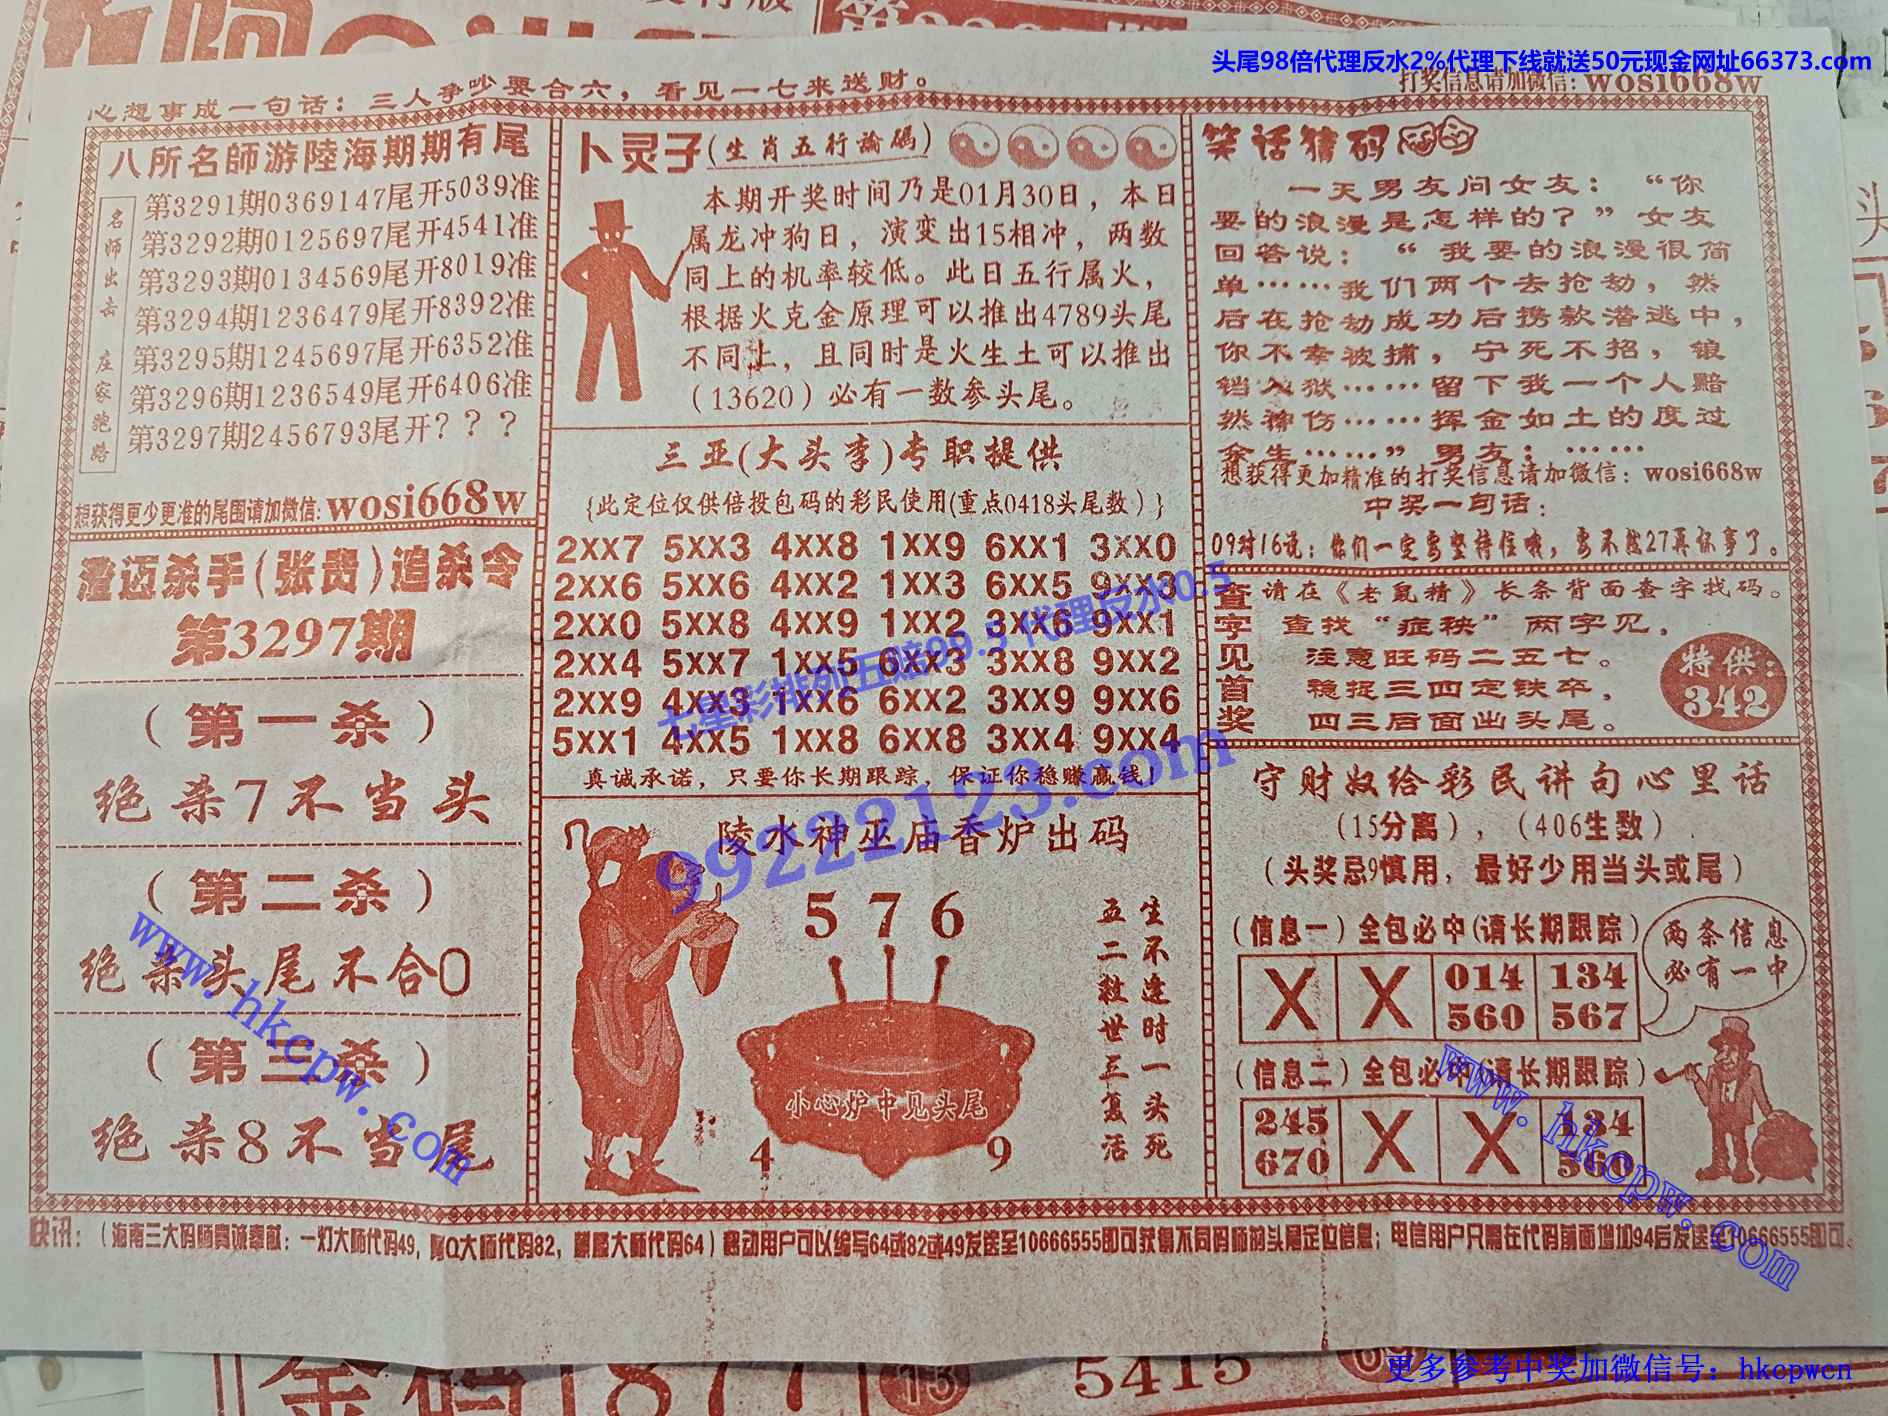 头尾98倍代理反水2%代理下线就送50元现金网址66373.com
打奖信息请加微信：wosi668w
心想事成一句话：三人争吵要合六，看见一七来送财。
八所名師游陸海期期有尾
名师出击 庄家跑路
第3291期0369147尾开5039准
第3292期0125697尾开4541准
第3293期0134569尾开8019准
第3294期1236479尾开8392准
第3295期1245697尾开6352准
第3296期1236549尾开6406准
第3297期2456793尾开？？？
想获得更少更准的尾围请加微信:wosi668w
澄迈杀手(张贵)追杀令
第3297期
（第一杀）
绝杀7不当头
（第二杀）
绝杀头尾不合0
（第三杀）
绝杀8不当尾
卜灵子(生肖五行論碼)
本期开奖时间乃是01月30日，本日
属龙冲狗日，演变出15相冲，两数
同上的机率较低。此日五行属火，
根据火克金原理可以推出4789头尾
不同上，且同时是火生土可以推出
（13620）必有一数参头尾。
三亚(大头李)专职提供
{此定位仅供倍投包码的彩民使用(重点0418头尾数）}
2XX7 5XX3 4XX8 1XX9 6XX1 3XX0
2XX6 5XX6 4XX2 1XX3 6XX5 9XX3
2XX0 5XX8 4XX9 1XX2 3XX6 9XX1
2XX4 5XX7 1XX5 6XX3 3XX8 9XX2
2XX9 4XX3 1XX6 6XX2 3XX9 9XX6
5XX1 4XX5 1XX8 6XX8 3XX4 9XX4
真诚承诺，只要你长期跟踪，保证你稳赚赢钱！
七星彩排列五赔99.5 代理反水0.5
99222123.com
陵水神巫庙香炉出码
5 7 6
生不逢时一头死
五二数世三复活
小心炉中见头尾
4 9
笑话猜码
一天男友问女友：“你
要的浪漫是怎样的？”女友
回答说：“我要的浪漫很简
单……我们两个去抢劫，然
后在抢劫成功后携款潜逃中，
你不幸被捕，宁死不招，锒
铛入狱……留下我一个人黯
然神伤……挥金如土的度过
余生……”男友：……
想获得更加精准的打奖信息请加微信：wosi668w
中奖一句话：
09对16说：你们一定要坚持住哦，要不然27再坏事了。
查字见首奖
请在《老鼠精》长条背面查字找码。
查找“症秧”两字见，
注意旺码二五七。
稳捉三四定铁卒，
四三后面出头尾。
特供：
342
守财奴给彩民讲句心里话
（15分离），（406生数）
（头奖忌9慎用，最好少用当头或尾）
（信息一）全包必中(请长期跟踪）
X X 014 134
560 567
两条信息
必有一中
（信息二）全包必中(请长期跟踪）
245 X X 134
670 560
www.hkcpw.com
www.hkcpw.com
快讯：（海南三大码师真诚奉献：一灯大师代码49，阿Q大师代码82，麒麟大师代码64）移动用户可以编写64或82或49发送至10666555即可获得不同码师的头尾定位信息；电信用户只需在代码前面增加94后发送至10666555即可。
金码 877 13 5415 69
更多参考中奖加微信号：hkcpwcn